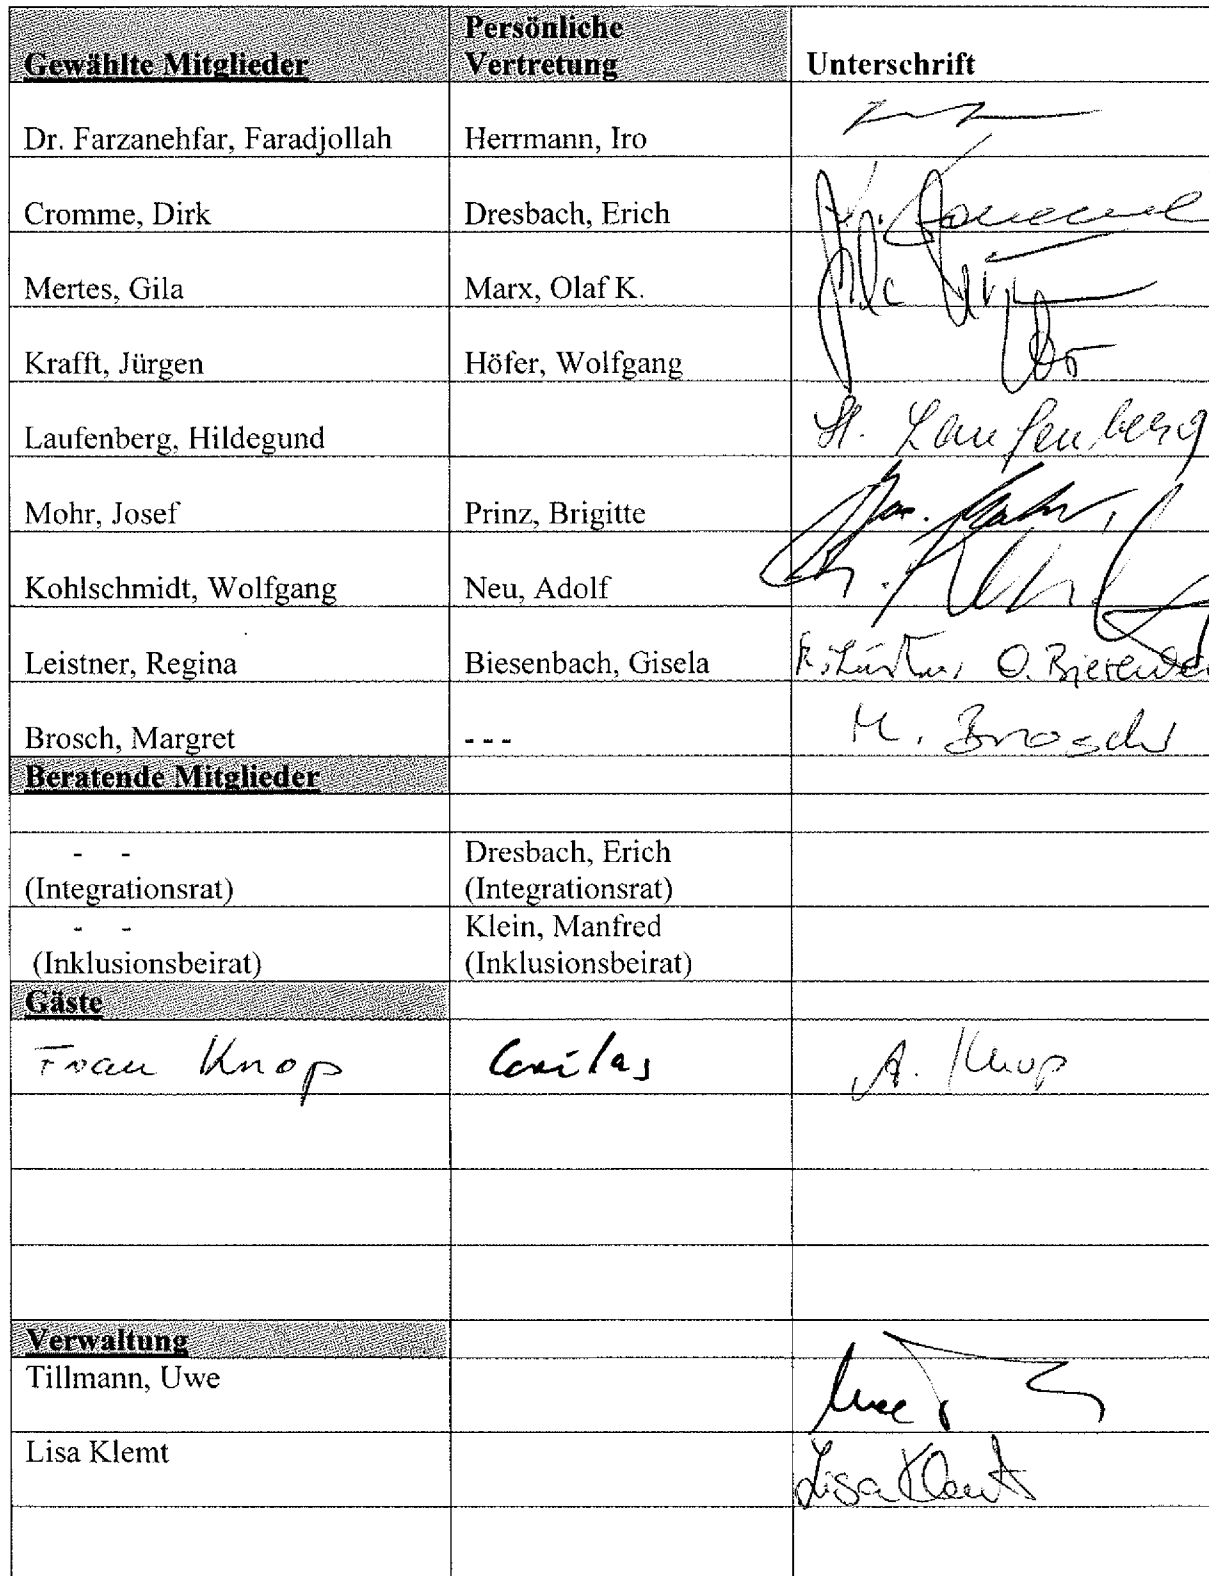 Gewählte Mitglieder
Persönliche
Vertretung
Unterschrift
Dr. Farzanehfar, Faradjollah
Herrmann, Iro
Cromme, Dirk
Dresbach, Erich
Mertes, Gila
Marx, Olaf K.
Krafft, Jürgen
Höfer, Wolfgang
Laufenberg, Hildegund
H. Laufenberg
Mohr, Josef
Prinz, Brigitte
Kohlschmidt, Wolfgang
Neu, Adolf
Leistner, Regina
Biesenbach, Gisela
Brosch, Margret
- - -
M. Brosch
Beratende Mitglieder
- -
(Integrationsrat)
Dresbach, Erich
(Integrationsrat)
- -
(Inklusionsbeirat)
Klein, Manfred
(Inklusionsbeirat)
Gäste
Frau Knop
Caritas
A. Knop
Verwaltung
Tillmann, Uwe
Uwe
Lisa Klemt
Lisa Klemt